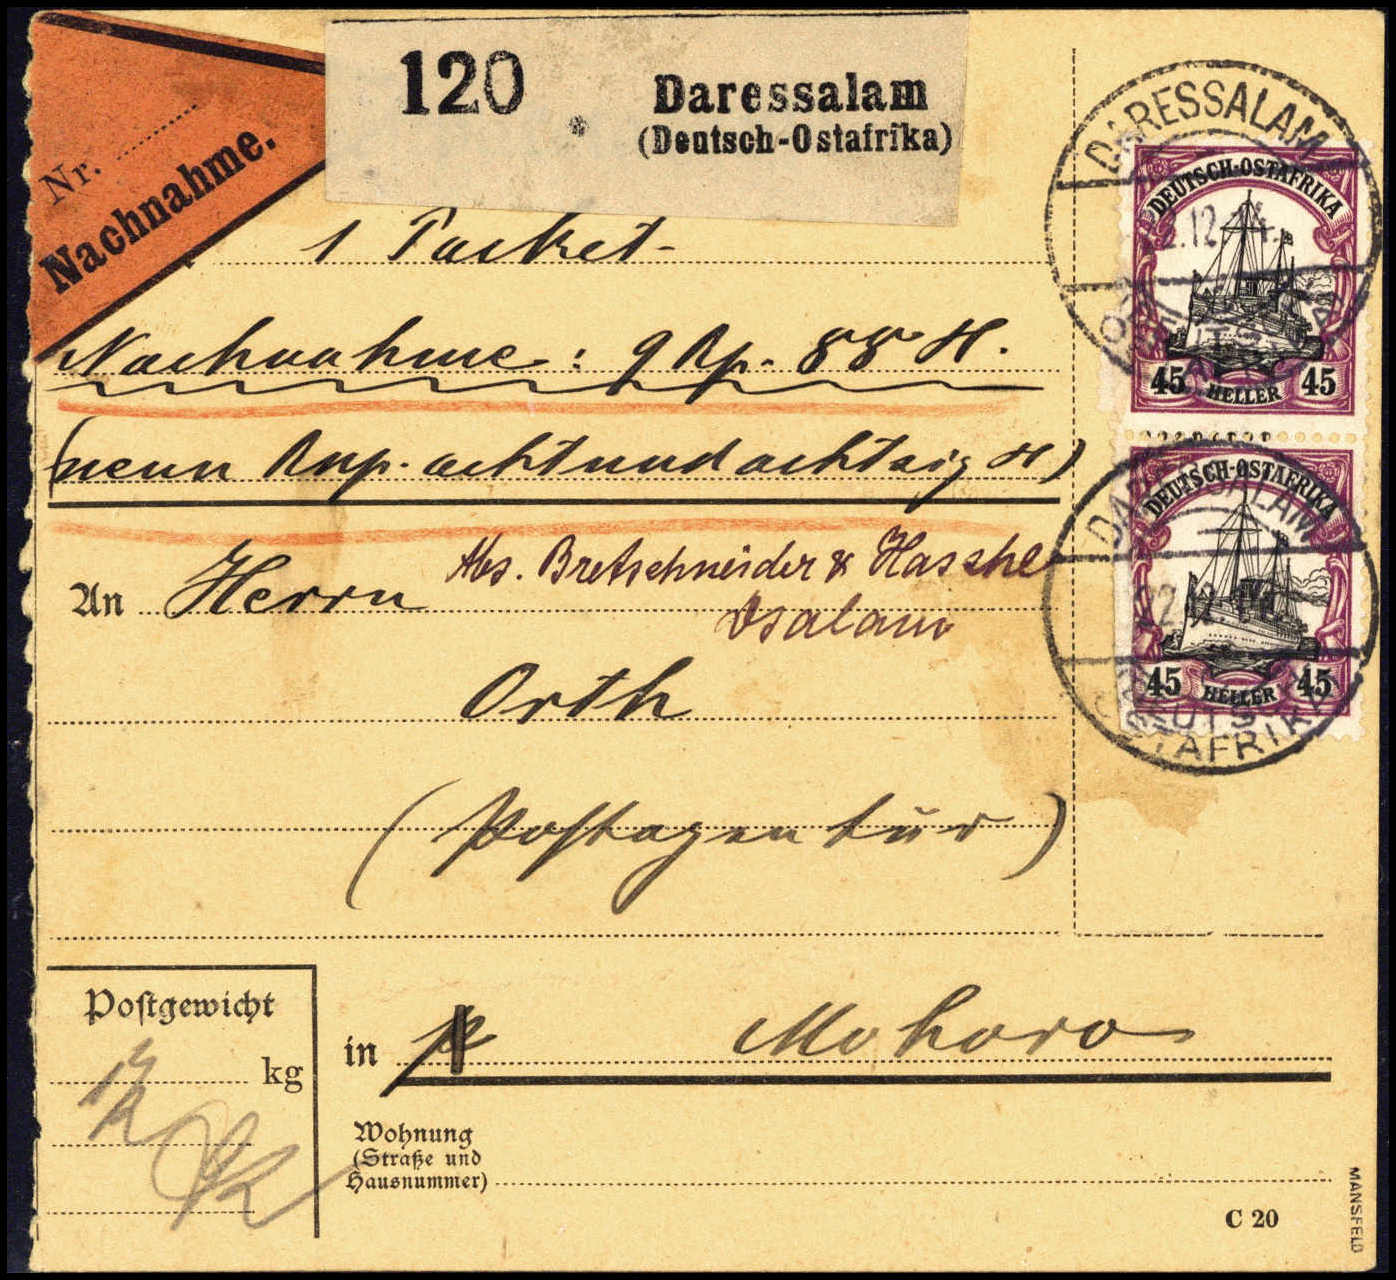 120
Daressalam
(Deutsch-Ostafrika)
Nr.
Nachnahme.
1 Packet
Nachnahme: 9 Rp. 88 H.
(neun Rup. achtundachtzig H)
An Herrn
Abs. Bretschneider & Hasche
Dsalam
Orth
(Postagentur)
in Mohoro
Postgewicht
kg
Wohnung
(Straße und
Hausnummer)
C 20
MANSFELD
DARESSALAM
DEUTSCH-OSTAFRIKA
45 HELLER 45
DEUTSCH-OSTAFRIKA
45 HELLER 45
22.12.
OSTAFRIKA